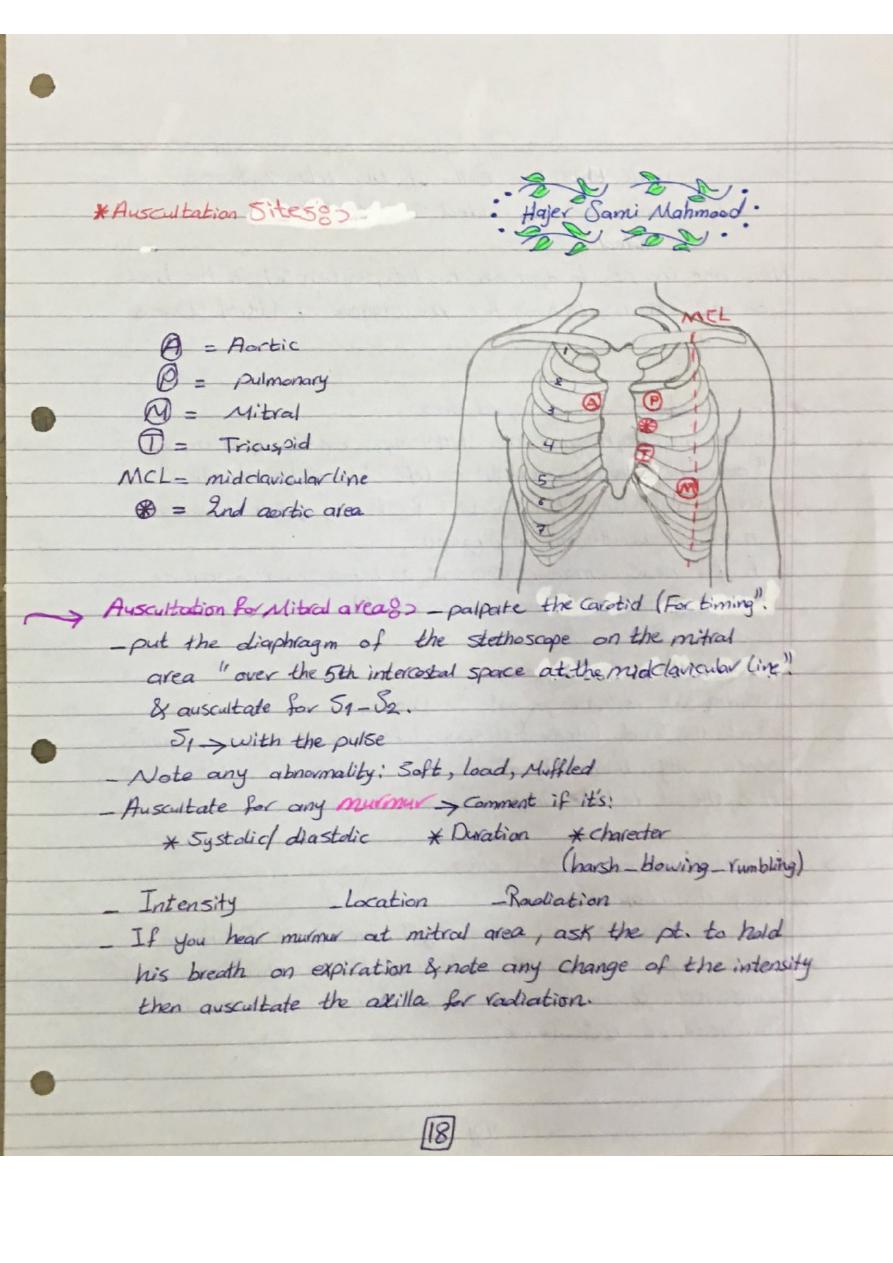 *Auscultation Sites:
Hajer Sami Mahmood
MCL
1
2
3
4
5
6
7
A
P
*
T
M
A = Aortic
P = pulmonary
M = Mitral
T = Tricuspid
MCL = midclavicular line
* = 2nd aortic area
→ Auscultation for Mitral area: - palpate the carotid (For timing".
- put the diaphragm of the stethoscope on the mitral
area "over the 5th intercostal space at the midclavicular line"
& auscultate for S1-S2.
S1 → with the pulse
- Note any abnormality: Soft, load, Muffled
- Auscultate for any murmur → Comment if it's:
* Systolic/ diastolic * Duration * charecter
(harsh - blowing - rumbling)
- Intensity - Location - Radiation
- If you hear murmur at mitral area, ask the pt. to hold
his breath on expiration & note any change of the intensity
then auscultate the axilla for radiation.
18